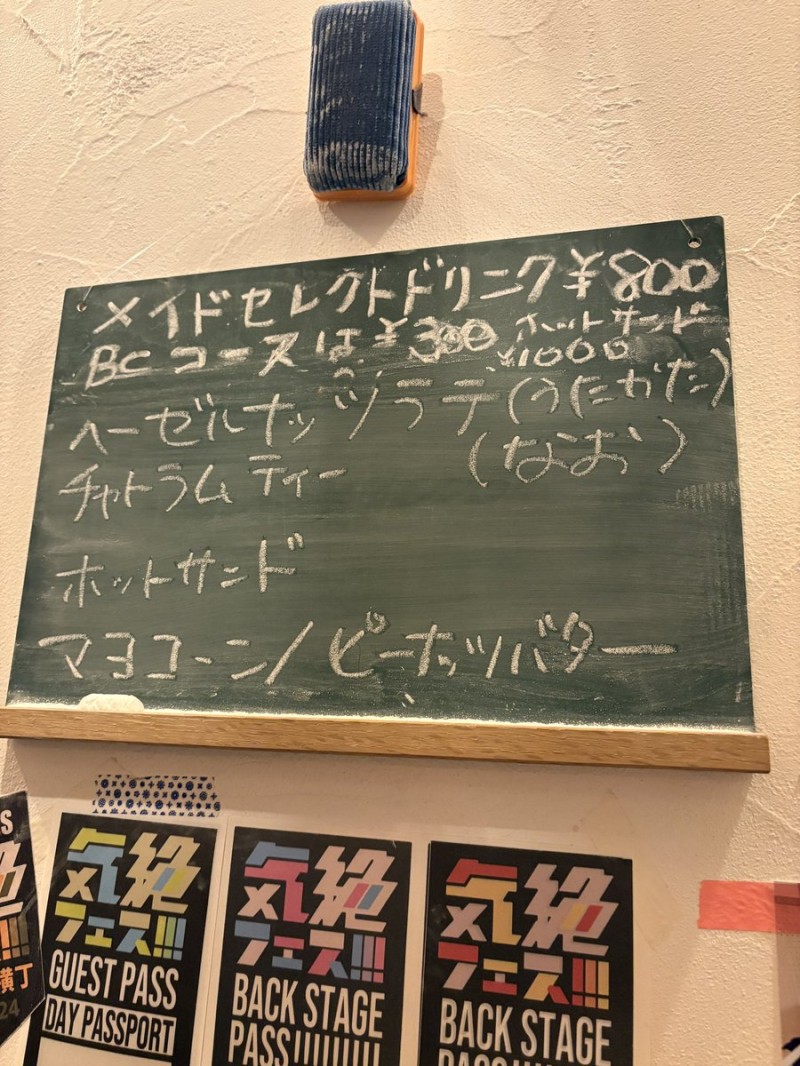 メイドセレクトドリンク ¥800
BCコースは¥300 ホットサンド
¥1000
ヘーゼルナッツラテ(うたかた)
チャトラムティー (なお)
ホットサンド
マヨコーン/ピーナッツバター
気絶
フェス!!!
GUEST PASS
DAY PASSPORT
気絶
フェス!!!
BACK STAGE
PASS!!!!!!!!!
気絶
フェス!!!
BACK STAGE
横丁
24